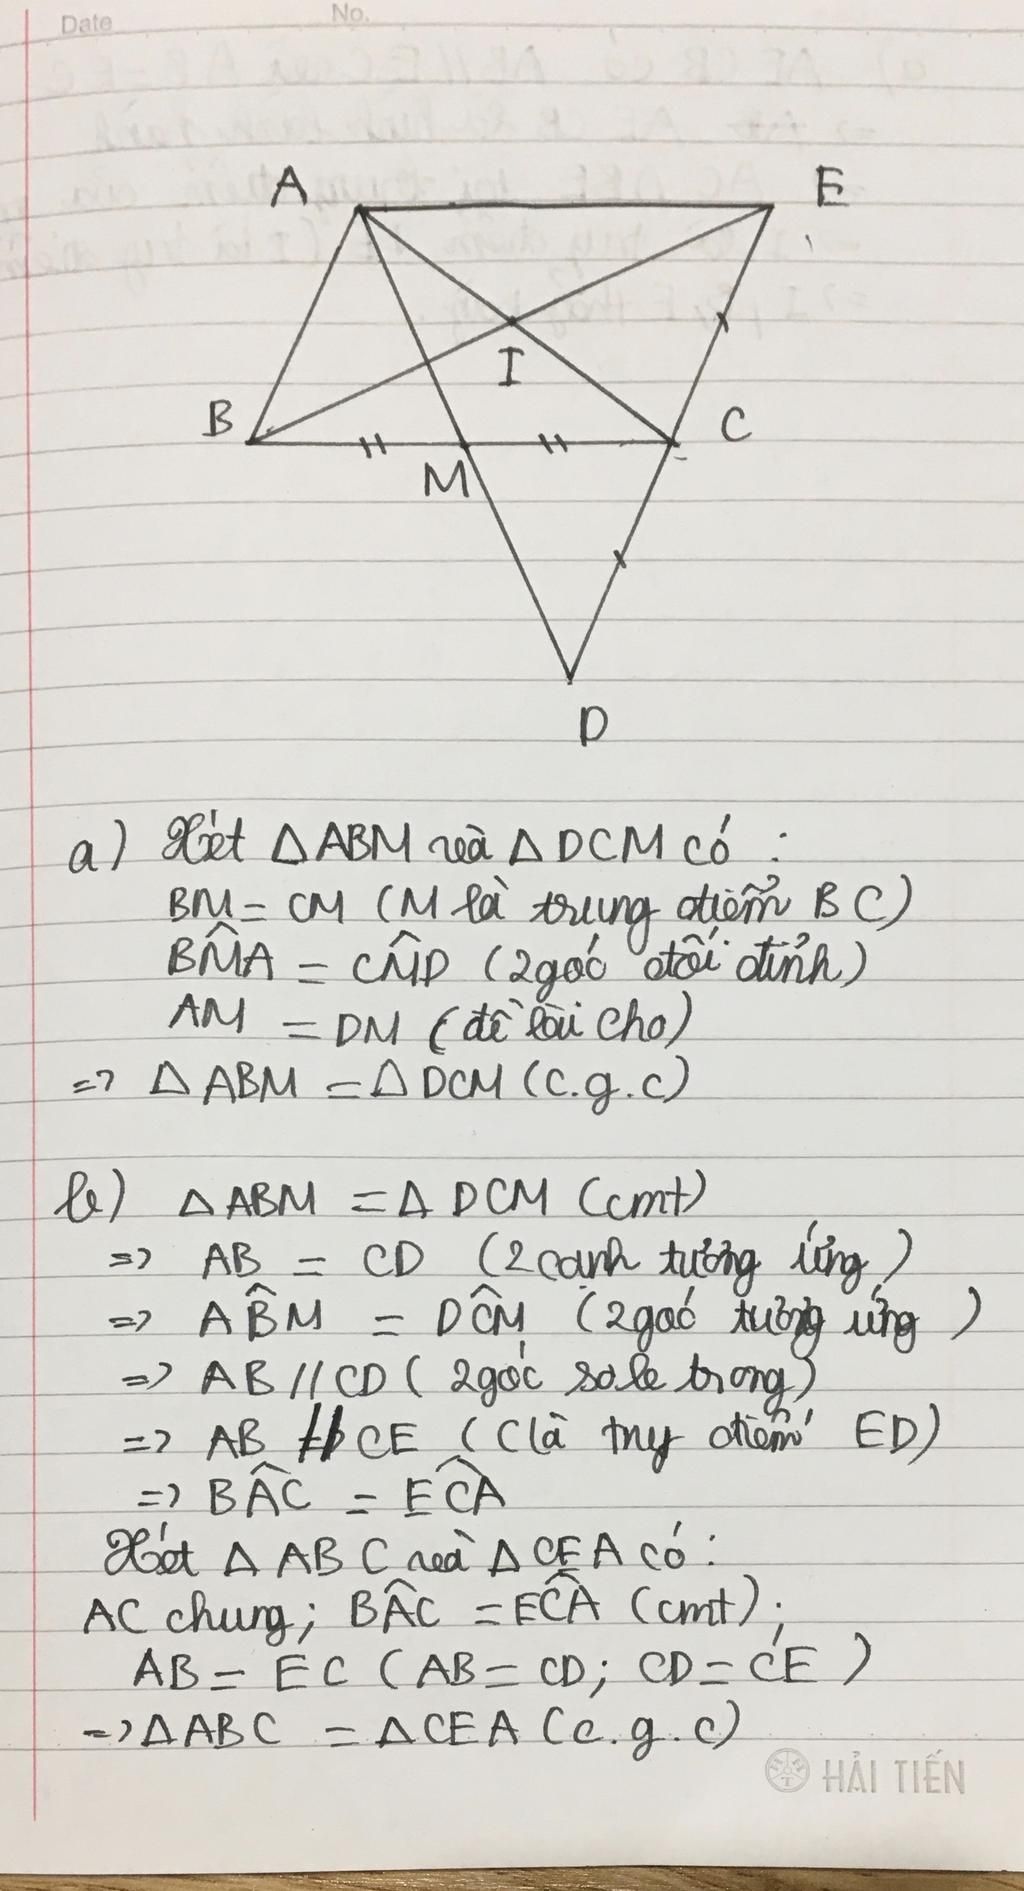 Date No.
A E
I
B C
M
D
a) Xét △ABM và △DCM có :
BM = CM (M là trung điểm BC)
BM̂A = CM̂D (2 góc đối đỉnh)
AM = DM (đề bài cho)
=> △ABM = △DCM (c.g.c)
b) △ABM = △DCM (cmt)
=> AB = CD (2 cạnh tương ứng)
=> AB̂M = DĈM (2 góc tương ứng)
=> AB // CD ( 2 góc so le trong)
=> AB // CE (C là trung điểm ED)
=> BÂC = EĈA
Xét △ABC và △CEA có :
AC chung; BÂC = EĈA (cmt);
AB = EC (AB = CD; CD = CE)
=> △ABC = △CEA (c.g.c)
HẢI TIẾN